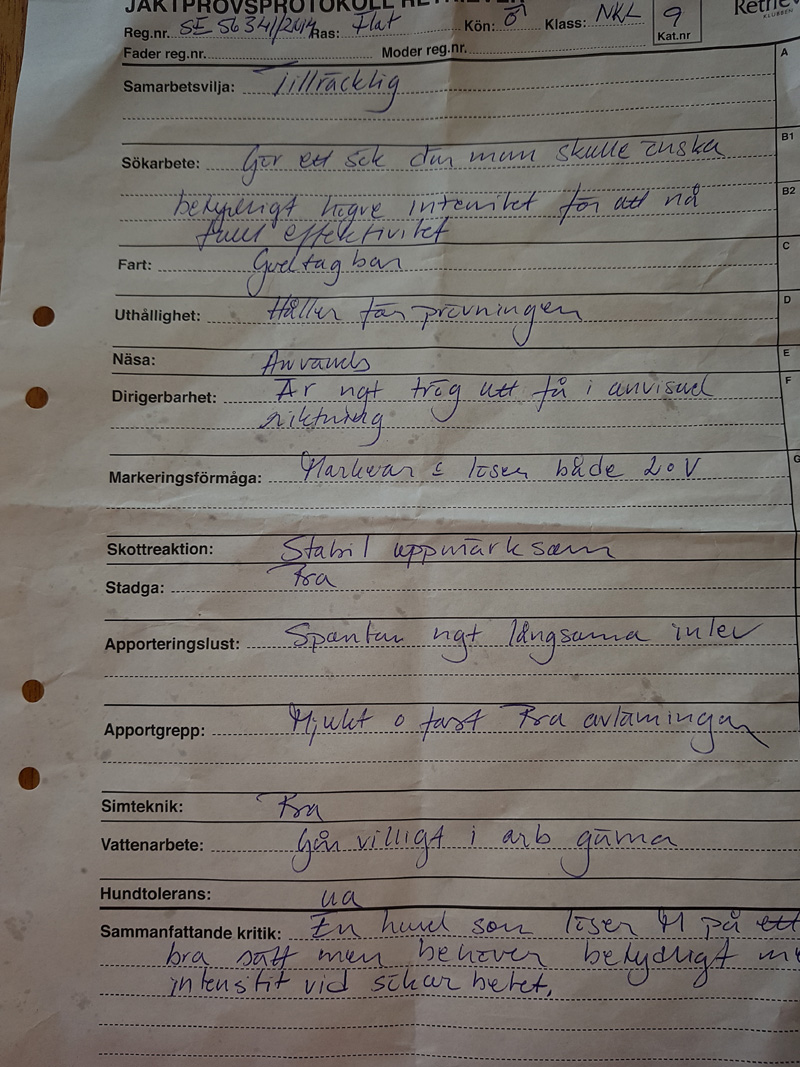 JAKTPROVSPROTOKOLL RETRIEVER
Reg.nr. SE56341/2014 Ras: Flat Kön: Klass: NKL 9 Kat.nr
Fader reg.nr. Moder reg.nr.
A
Samarbetsvilja: Tillräcklig
B1
Sökarbete: Gör ett sök där man skulle önska
B2
betydligt högre intensitet för att nå
full effektivitet
C
Fart: Godtagbar
D
Uthållighet: Håller för prövningen
E
Näsa: Används
F
Dirigerbarhet: Är ngt trög att få i anvisad
riktning
G
Markeringsförmåga: Markerar löser både L o V
Skottreaktion: Stabil uppmärksam
Stadga: Bra
Apporteringslust: Spontan ngt långsamma inlev
Apportgrepp: Mjukt o fast Bra avlämningar
Simteknik: Bra
Vattenarbete: Går villigt i arb gärna
Hundtolerans: ua
Sammanfattande kritik: En hund som löser M på ett
bra sätt men behöver betydligt
intensitit vid sökarbetet.